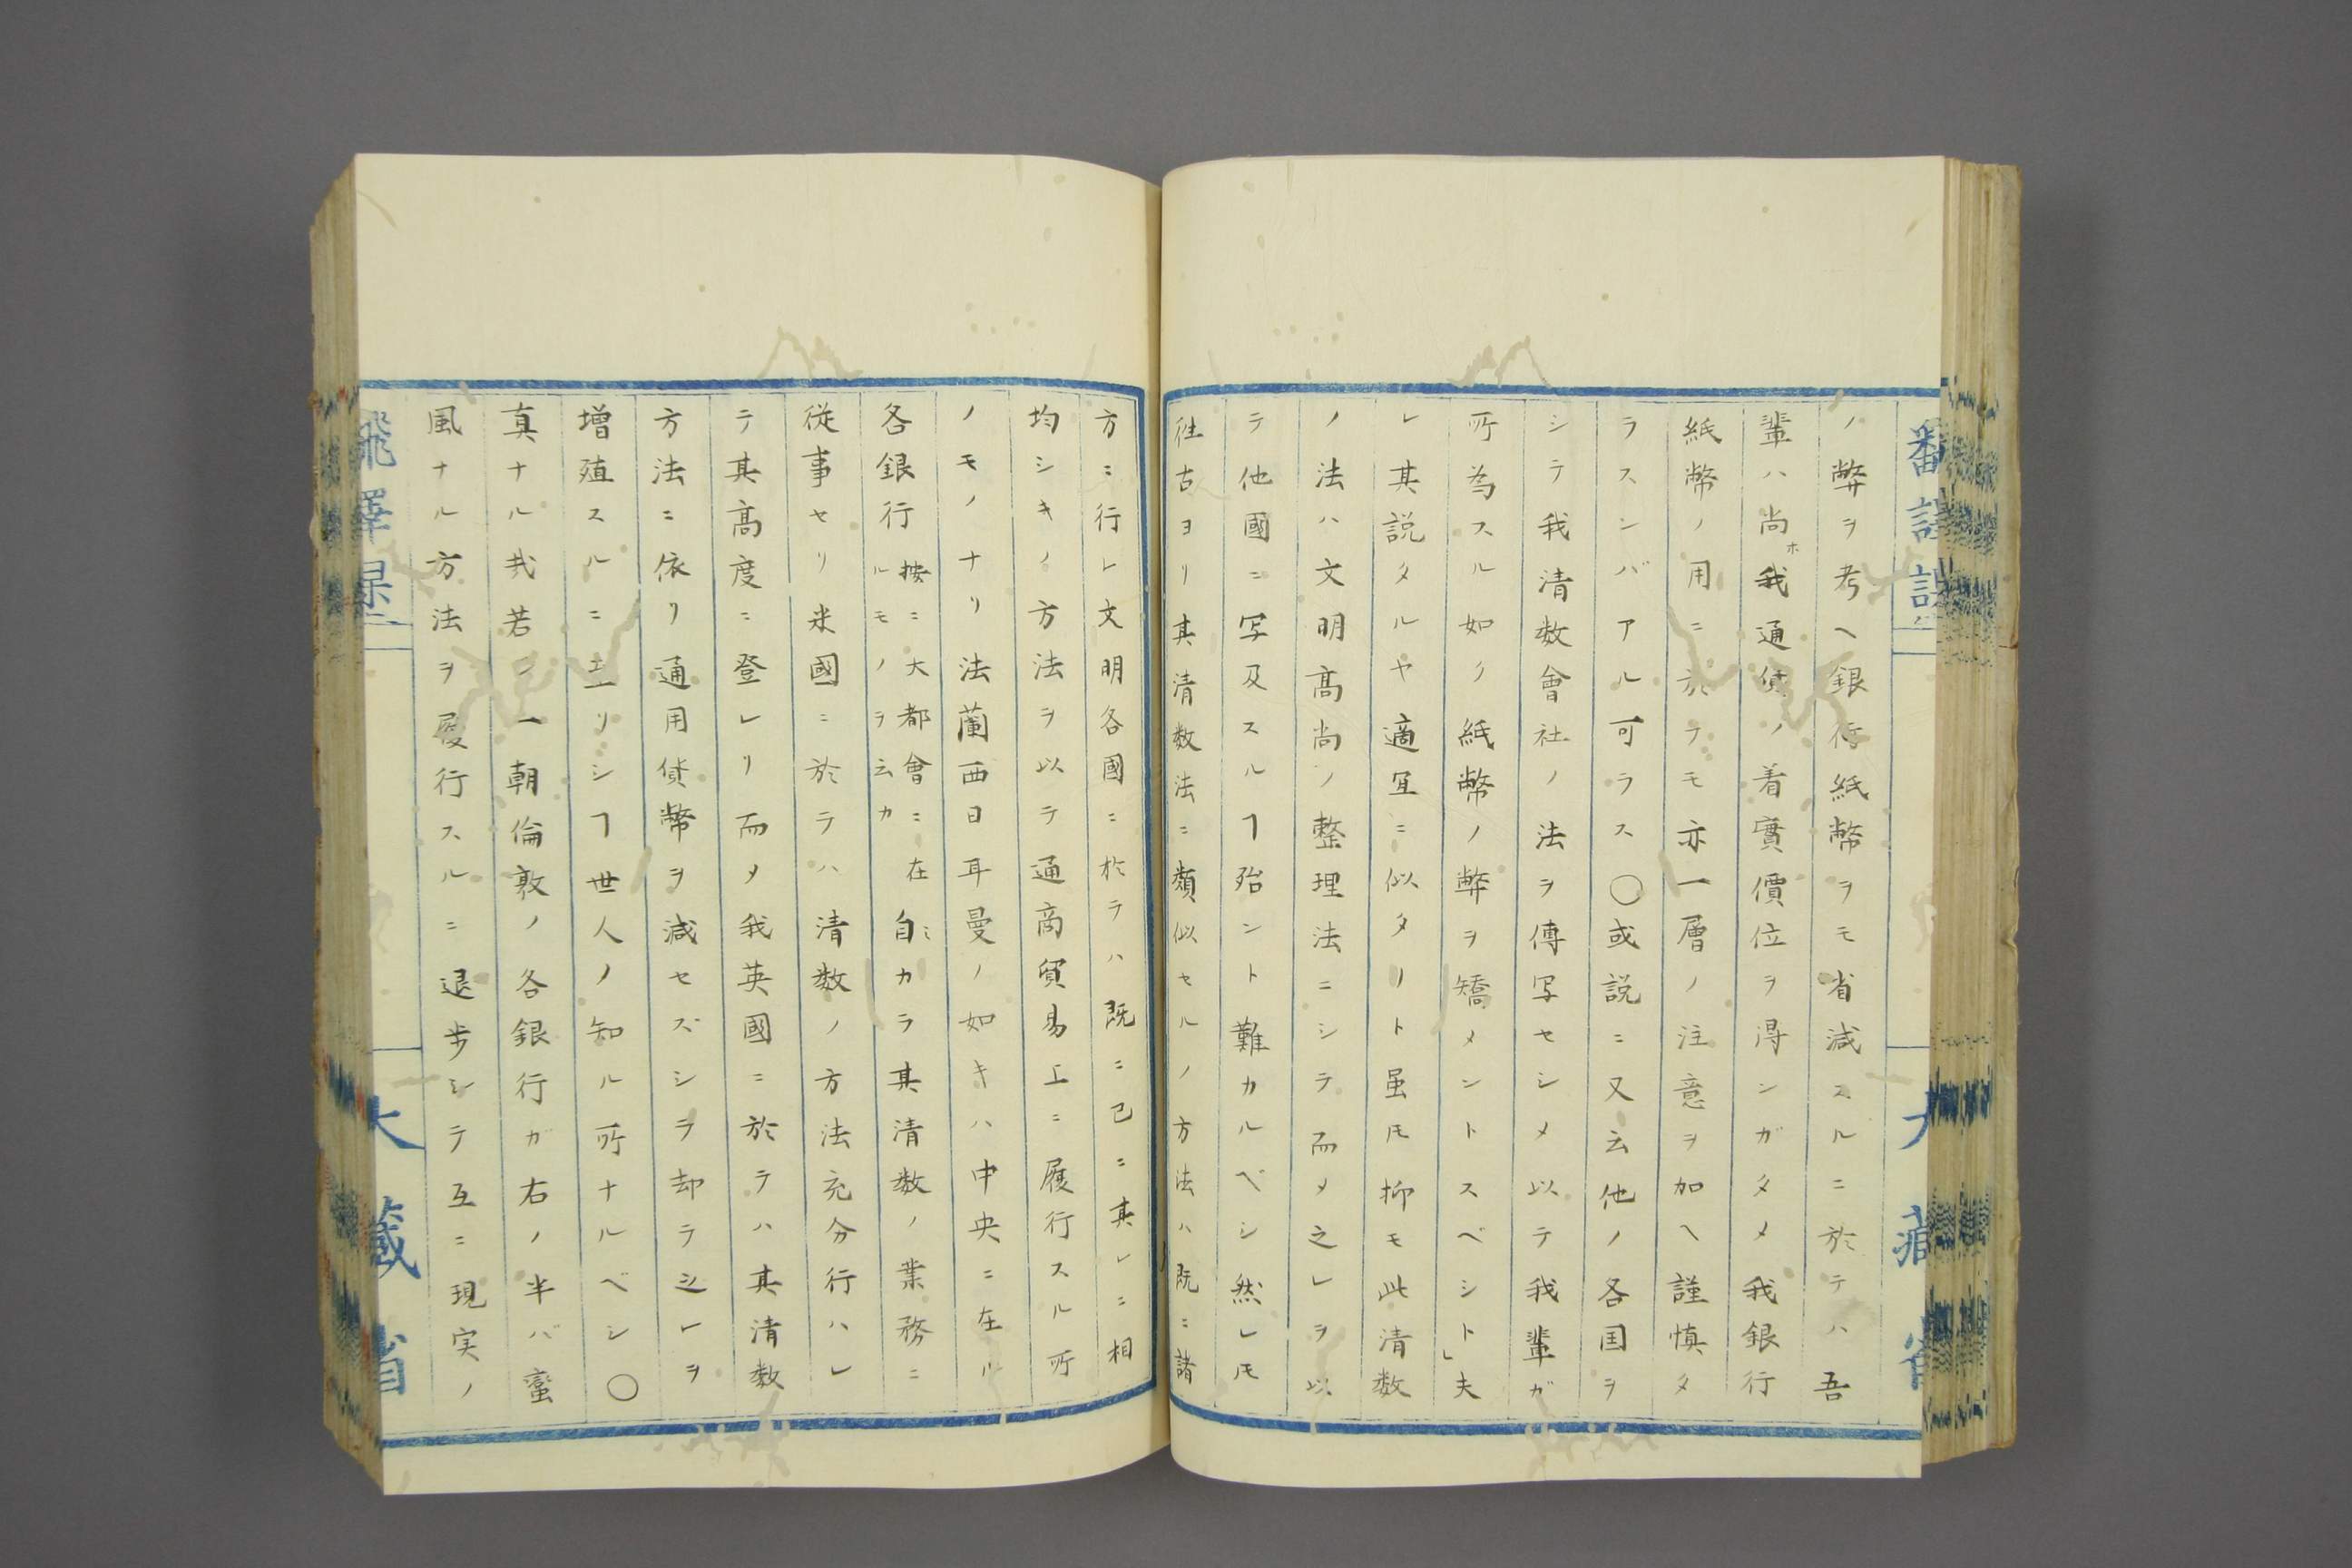 ノ弊ヲ考ヘ銀行紙幣ヲモ省減スルニ於テハ吾
輩ハ尚ホ我通貨ノ着實價位ヲ得ンガタメ我銀行
紙幣ノ用ニ於テモ亦一層ノ注意ヲ加ヘ謹慎タ
ラスンバアル可ラス〇或説ニ又云他ノ各国ヲ
シテ我清数會社ノ法ヲ傳写セシメ以テ我輩ガ
所為スル如ク紙幣ノ弊ヲ矯メントスベシト」夫
レ其説タルヤ適宜ニ似タリト虽𪜈抑モ此清数
ノ法ハ文明高尚ノ整理法ニシテ而メ之レヲ以
テ他國ニ写及スルヿ殆ント難カルベシ然レ𪜈
往古ヨリ其清数法ニ類似セルノ方法ハ既ニ諸
方ニ行レ文明各國ニ於テハ既ニ已ニ其レニ相
均シキノ方法ヲ以テ通商貿易上ニ履行スル所
ノモノナリ法蘭西日耳曼ノ如キハ中央ニ在ル
各銀行 按ニ大都會ニ在ルモノヲ云カ 自ミカラ其清数ノ業務ニ
従事セリ米國ニ於テハ清数ノ方法充分行ハレ
テ其高度ニ登レリ而メ我英國ニ於テハ其清数
方法ニ依リ通用貨幣ヲ減セズシテ却テ之レヲ
増殖スルニ至リシヿ世人ノ知ル所ナルベシ〇
真ナル哉若シ一朝倫敦ノ各銀行ガ右ノ半バ蛮
風ナル方法ヲ履行スルニ退歩シテ互ニ現実ノ
大藏省